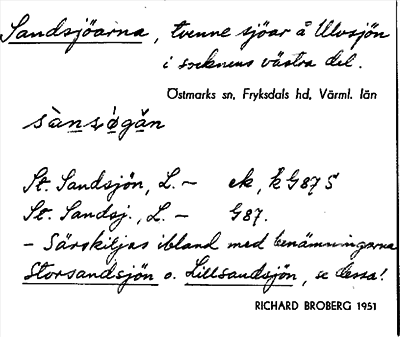 Sandsjöarna, tvenne sjöar å Ulvsjön
i socknens västra del.
Östmarks sn, Fryksdals hd, Värml. län
sànsǿgǎn
St. Sandsjön, L. – ek, k G87 S
St. Sandsj., L. – G87.
– Särskiljas ibland med benämningarna
Storsandsjön o. Lillsandsjön, se dessa!
RICHARD BROBERG 1951